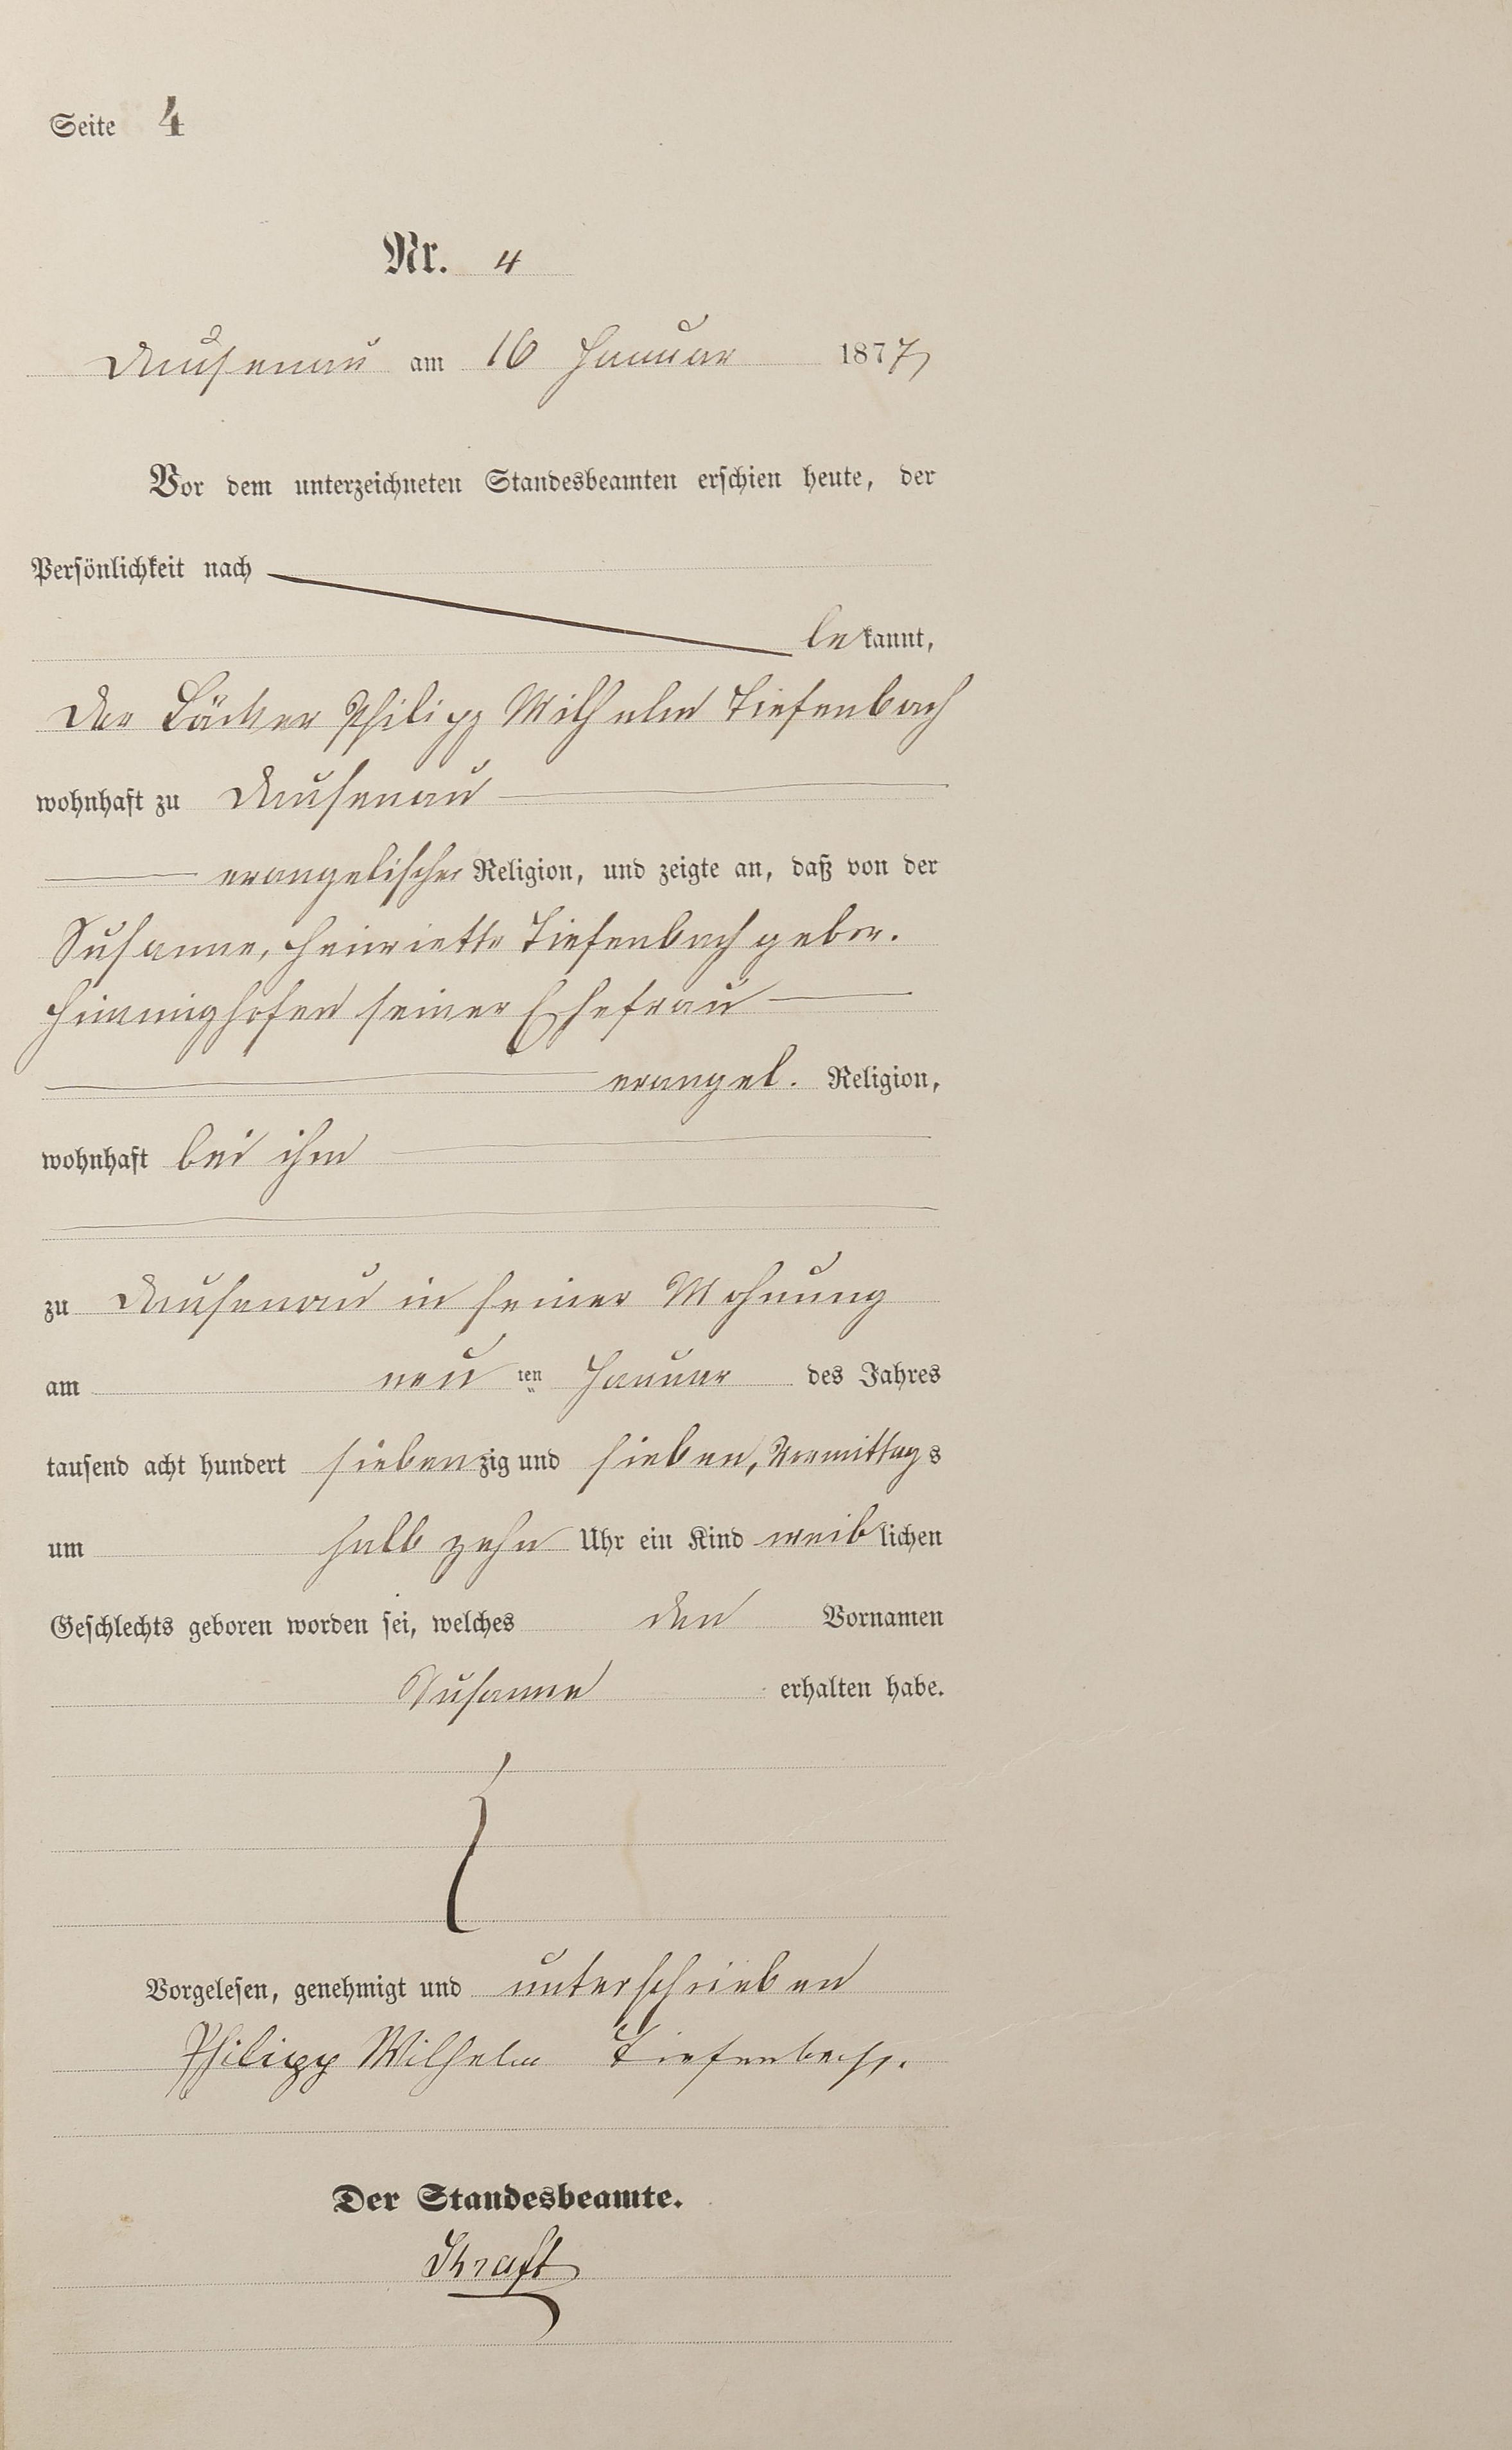 Seite 4
Nr. 4
Dausenau am 16 Januar 1877
Vor dem unterzeichneten Standesbeamten erschien heute, der
Persönlichkeit nach
bekannt,
der Bäcker Philipp Wilhelm Tiefenbach
wohnhaft zu Dausenau
evangelischer Religion, und zeigte an, daß von der
Susanne, Henriette Tiefenbach gebor.
Himmighofen seiner Ehefrau
evangel. Religion,
wohnhaft bei ihm
zu Dausenau in seiner Wohnung
am neunten Januar des Jahres
tausend acht hundert siebenzig und sieben, Vormittags
um halb zehn Uhr ein Kind weiblichen
Geschlechts geboren worden sei, welches den Vornamen
Susanne erhalten habe.
Vorgelesen, genehmigt und unterschrieben
Philipp Wilhelm Tiefenbach.
Der Standesbeamte.
Kraft